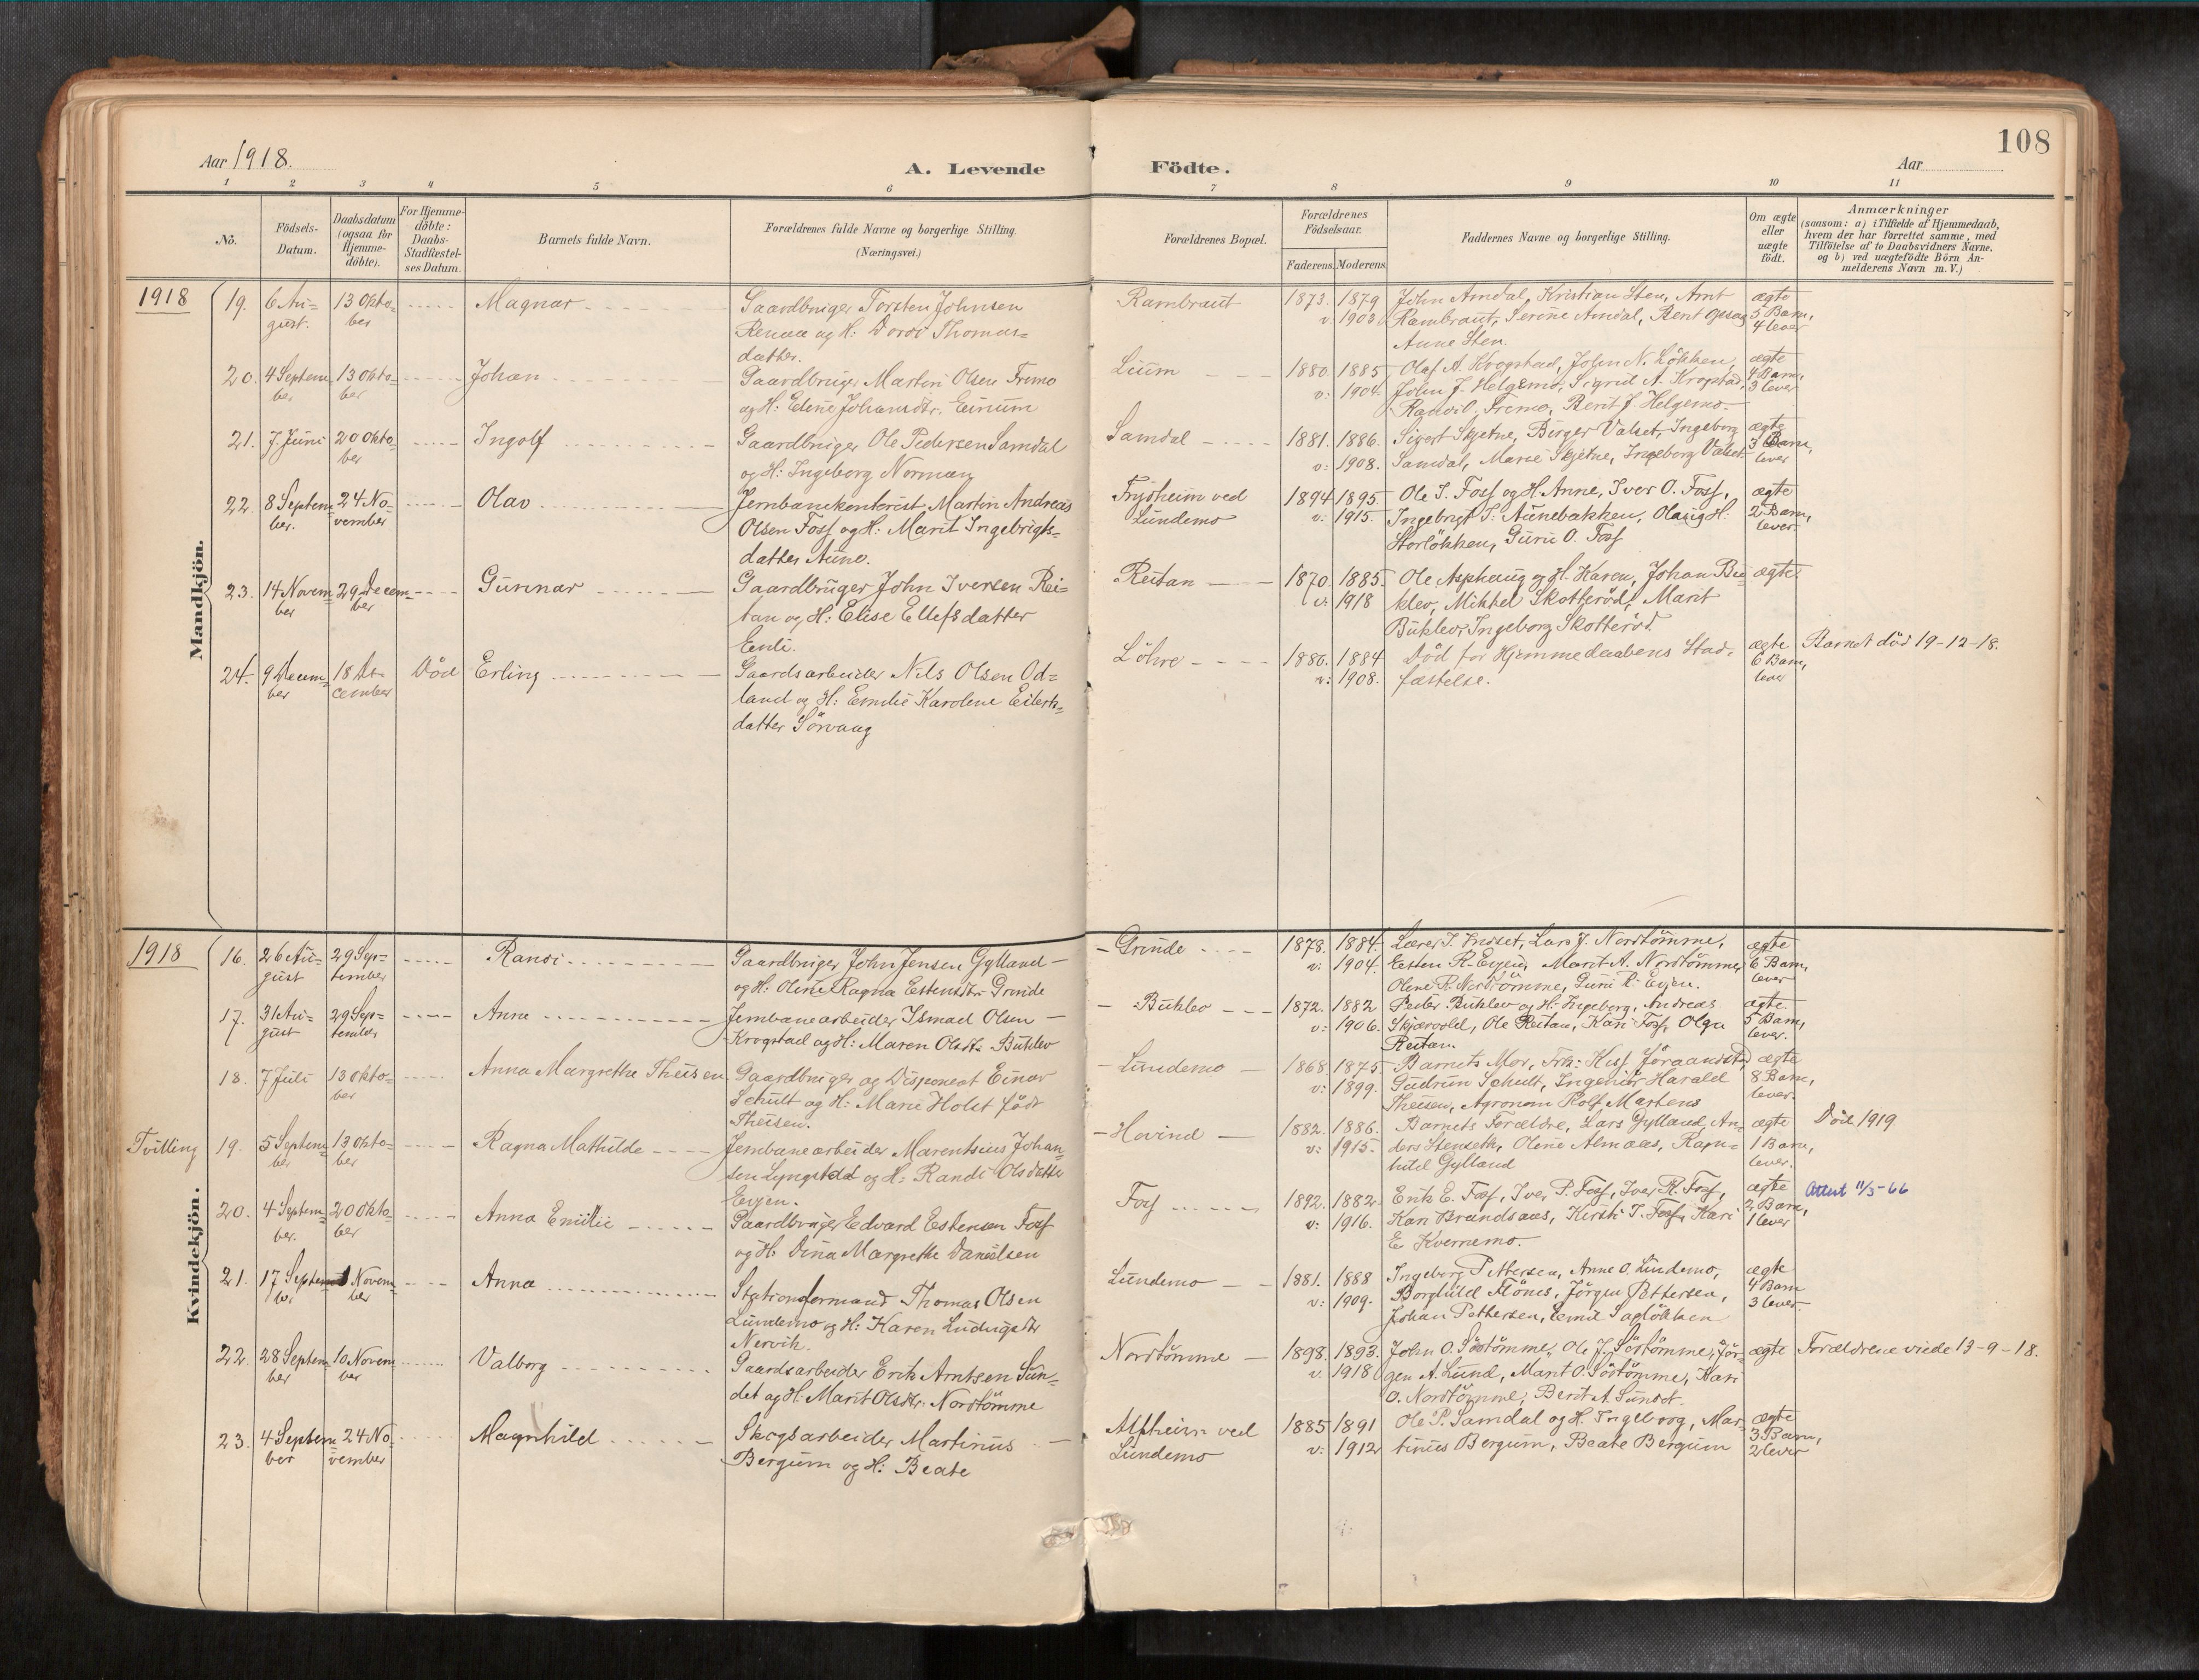 108
Aar 1918.
A. Levende Födte.
Aar
1 2 3 4 5 6 7 8 9 10 11
No.
Födsels-
Datum.
Daabsdatum
(ogsaa for
Hjemme-
döbte).
For Hjemme-
döbte:
Daabs-
Stadfæstel-
ses Datum.
Barnets fulde Navn.
Forældrenes fulde Navne og borgerlige Stilling.
(Næringsvei.)
Forældrenes Bopæl.
Forældrenes
Födselsaar.
Faderens. Moderens.
Faddernes Navne og borgerlige Stilling.
Om ægte
eller
uægte
födt.
Anmærkninger
(saasom: a) i Tilfælde af Hjemmedaab,
hvem der har forrettet samme, med
Tilföielse af to Daabsvidners Navne,
og b) ved uægtefödte Börn An-
melderens Navn m. V.)
1918
Mandkjön.
19. 6 Au-
gust.
13 Okto-
ber
Magnar
Gaardbruger Torsten Johnsen
Renaa og H: Dordi Thomas-
datter.
Rambraut
1873. 1879
v. 1903
John Amdal, Kristian Sten, Arnt
Rambraut, Serine Amdal, Berit Opsag
Anne Sten.
ægte
5 Barn,
4 lever
20. 4 Septem-
ber
13 Okto-
ber
Johan
Gaardbruger Martin Olsen Fremo
og H: Eline Johansdtr. Einum
Lium
1880. 1885
v: 1904.
Olaf A. Krogstad, John N. Løkken,
John J. Helgemo, Sigrid A. Krogstad,
Randi O. Fremo, Berit J. Helgemo.
ægte
4 Barn,
3 lever
21. 7 Juni
20 Okto-
ber
Ingolf
Gaardbruger Ole Pedersen Samdal
og H: Ingeborg Norman
Samdal
1881. 1886.
v: 1908.
Sivert Skjetne, Birger Valset, Ingeborg
Samdal, Marie Skjetne, Ingeborg Valset
ægte
3 Barn,
lever
22. 8 Septem-
ber.
24 No-
vember
Olav
Jernbanekontorist Martin Andreas
Olsen Foss og H: Marit Ingebrigts-
datter Aune.
Frydheim ved
Lundemo
1894 1895
v: 1915.
Ole I. Foss og H. Anne, Iver O. Foss,
Ingebrigt I. Aunebakken, Olaug H.
Storløkken, Guru O. Foss
ægte
2 Barn,
lever.
23. 14 Novem-
ber
29 Decem-
ber
Gunnar
Gaardbruger John Iversen Rei-
tan og H: Elise Ellefsdatter
Enli.
Reitan
1870. 1885
v: 1918
Ole Asphaug og H. Karen, Johan Bu-
klev, Mikkel Skotterød, Marit
Buklev, Ingeborg Skotterød.
ægte.
24. 9 Decem-
ber
18 De-
cember
Død
Erling
Gaardsarbeider Nils Olsen Od-
land og H: Emilie Karoline Eilerts-
datter Sørvaag
Løhre
1886. 1884
v: 1908.
Død før Hjemmedaabens Stad-
fæstelse.
ægte
6 Barn,
lever
Barnet død 19-12-18.
1918
Kvindekjön.
16. 26 Au-
gust
29 Sep-
tember
Randi
Gaardbruger John Jensen Gylland
og H: Oline Ragna Estensdtr. Grinde
Grinde
1878. 1884.
v: 1904.
Lærer I. Indset, Lars J. Nordtømme,
Esten R. Evjen, Marit A. Nordtømme,
Olene P. Nordtømme, Guri R. Evjen.
ægte
6 Barn,
lever
17. 31 Au-
gust
29 Sep-
tember
Anna
Jernbanearbeider Ismael Olsen
Krogstad og H: Maren Olsdtr. Buklev
Buklev
1872. 1882
v: 1906.
Peder Buklev og H. Ingeborg, Andreas
Skjærvold, Ole Reitan, Kari Foss, Olga
Reitan.
ægte
5 Barn,
lever.
18. 7 Juli
13 Okto-
ber
Anna Margrethe Theisen
Gaardbruger og Disponent Einar
Schult og H: Marie Holst født
Theisen.
Lundemo
1868. 1875
v: 1899.
Barnets Mor, Frk:
Gudrun Schult, Ingeniør Harald
Theisen, Agronom Rolf Martens
ægte
8 Barn,
lever.
Tvilling
19. 5 Septem-
ber
13 Okto-
ber
Ragna Mathilde
Jernbanearbeider Marentsius Johan-
sen Lyngstad og H: Randi Olsdatter
Evjen.
Hovind
1882. 1886.
v: 1915.
Barnets Forældre, Lars Gylland, An-
ders Stenseth, Oline Almaas, Ragn-
hild Gylland
ægte
1 Barn,
lever.
Død 1919
20. 4 Septem-
ber.
20 Okto-
ber
Anna Emilie
Gaardbruger Edvard Estensen Foss
og H. Dina Margrethe Danielsen
Foss
1892. 1882
v: 1916.
Erik E. Foss, Iver P. Foss, Iver R. Foss,
Kari Brandsaas, Kirsti I. Foss, Kari
E. Kvernemo.
ægte
2 Barn,
1 lever
Attest 11/5-66
21. 17 Septem-
ber
1 Novem-
ber
Anna
Stationsformand Thomas Olsen
Lundemo og H: Karen Ludvigsdtr
Nervik.
Lundemo
1881. 1888
v: 1909.
Ingeborg Pettersen, Anne O. Lundemo,
Borghild Flønes, Jørgen Pettersen,
Johan Pettersen, Emil Sagløkken
ægte
4 Barn
3 lever.
22. 28 Septem-
ber
10 Novem-
ber
Valborg
Gaardsarbeider Erik Arntsen Sun-
det og H: Marit Olsdtr. Nordtømme
Nordtømme
1898. 1893.
v. 1918
John O. Sørtømme, Ole J. Sørtømme, Jør-
gen A. Lund, Marit O. Sørtømme, Kari
O. Nordtømme, Berit A. Sundet.
ægte
Forældrene viede 13-9-18.
23. 4 Septem-
ber
24 No-
vember
Magnhild
Skogsarbeider Martinus
Bergum og H: Beate
Alfheim ved
Lundemo
1885 1891
v: 1912
Ole P. Samdal og H. Ingeborg, Mar-
tinus Bergum, Beate Bergum
ægte
3 Barn,
2 lever